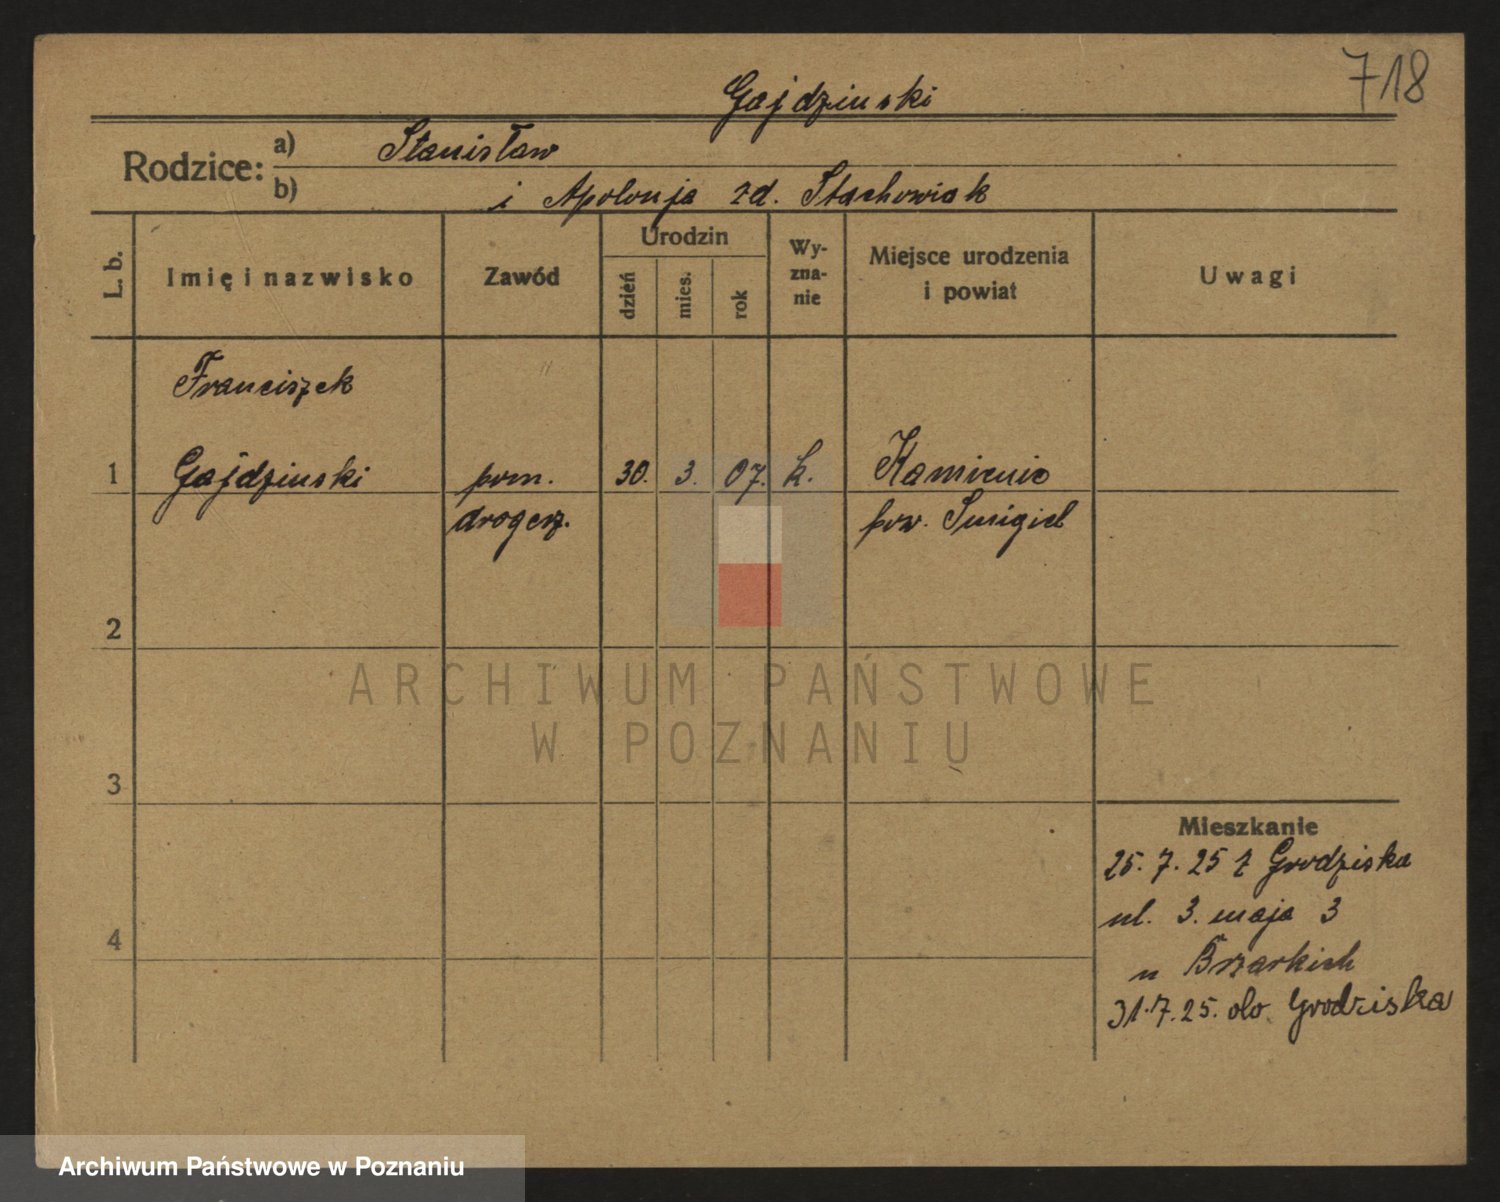 718
Gajdzinski
Rodzice: a) Stanisław
b) i Apolonja zd. Stachowiak
L. b.
Imię i nazwisko
Zawód
Urodzin
dzień
mies.
rok
Wy-
zna-
nie
Miejsce urodzenia
i powiat
Uwagi
Franciszek
1 Gajdzinski pom. 30. 3. 07. k. Kamienie
drogerz. pow. Smigiel
2
ARCHIWUM PAŃSTWOWE
W POZNANIU
3
Mieszkanie
25. 7. 25 z Grodziska
ul. 3. maja 3
4
u Brzarkich
31. 7. 25. do Grodziska
Archiwum Państwowe w Poznaniu